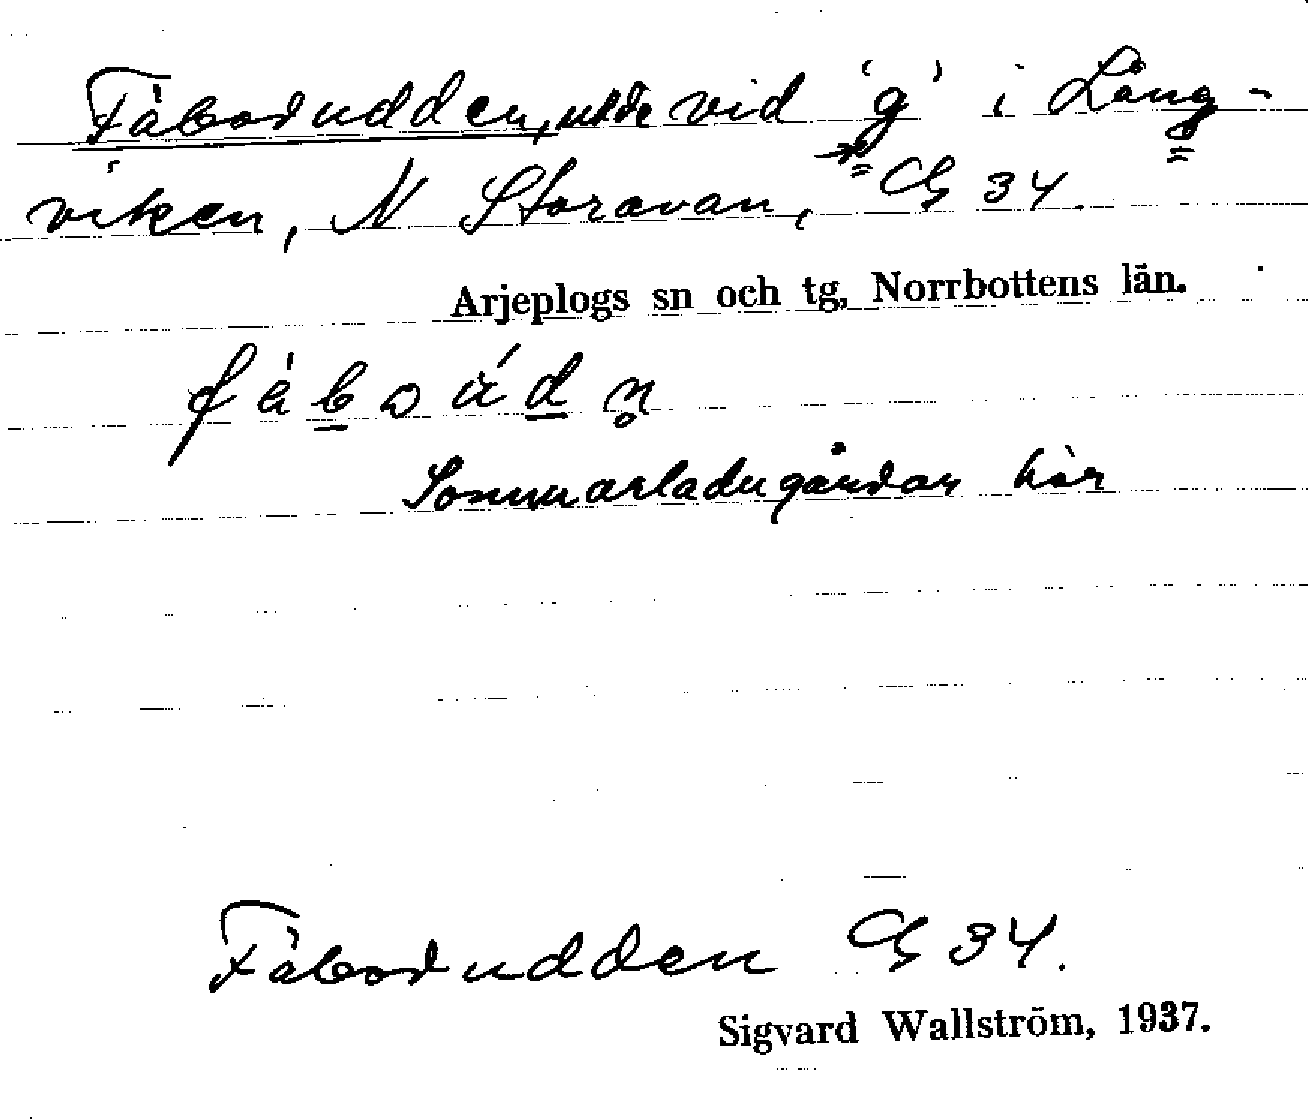 Fäbodudden, udde vid 'g' i Lång-
viken, N Storavan, G 34.
Arjeplogs sn och tg, Norrbottens län.
fäboúdn̥
Sommarladugårdar här
Fäbodudden G 34.
Sigvard Wallström, 1937.